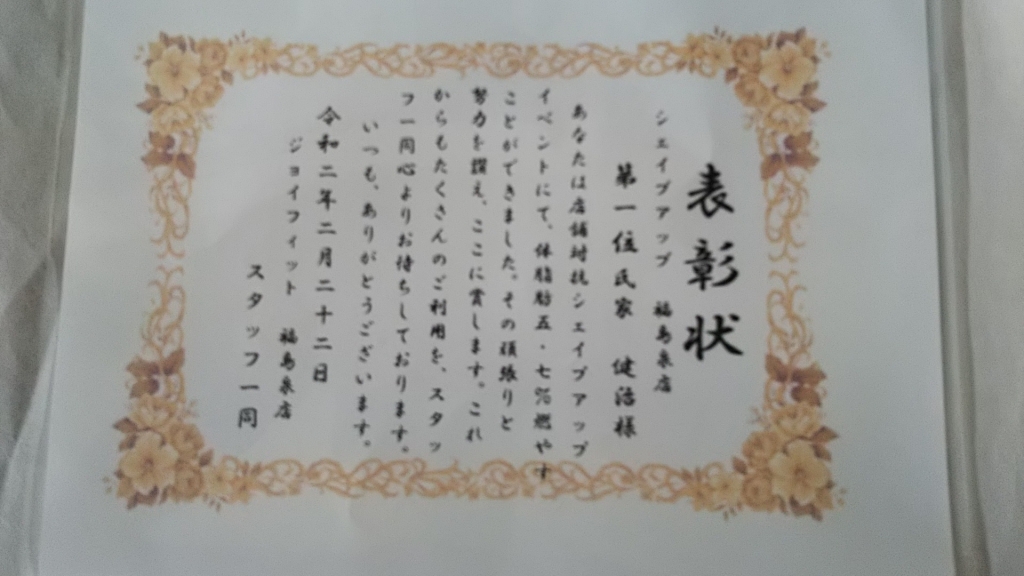 表彰状
シェイプアップ 福島泉店
第一位 氏家 健治様
あなたは店舗対抗シェイプアップ
イベントにて、体脂肪五・七％燃やす
ことができました。その頑張りと
努力を讃え、ここに賞します。これ
からもたくさんのご利用を、スタッ
フ一同心よりお待ちしております。
いつも、ありがとうございます。
令和二年二月二十二日
ジョイフィット 福島泉店
スタッフ一同